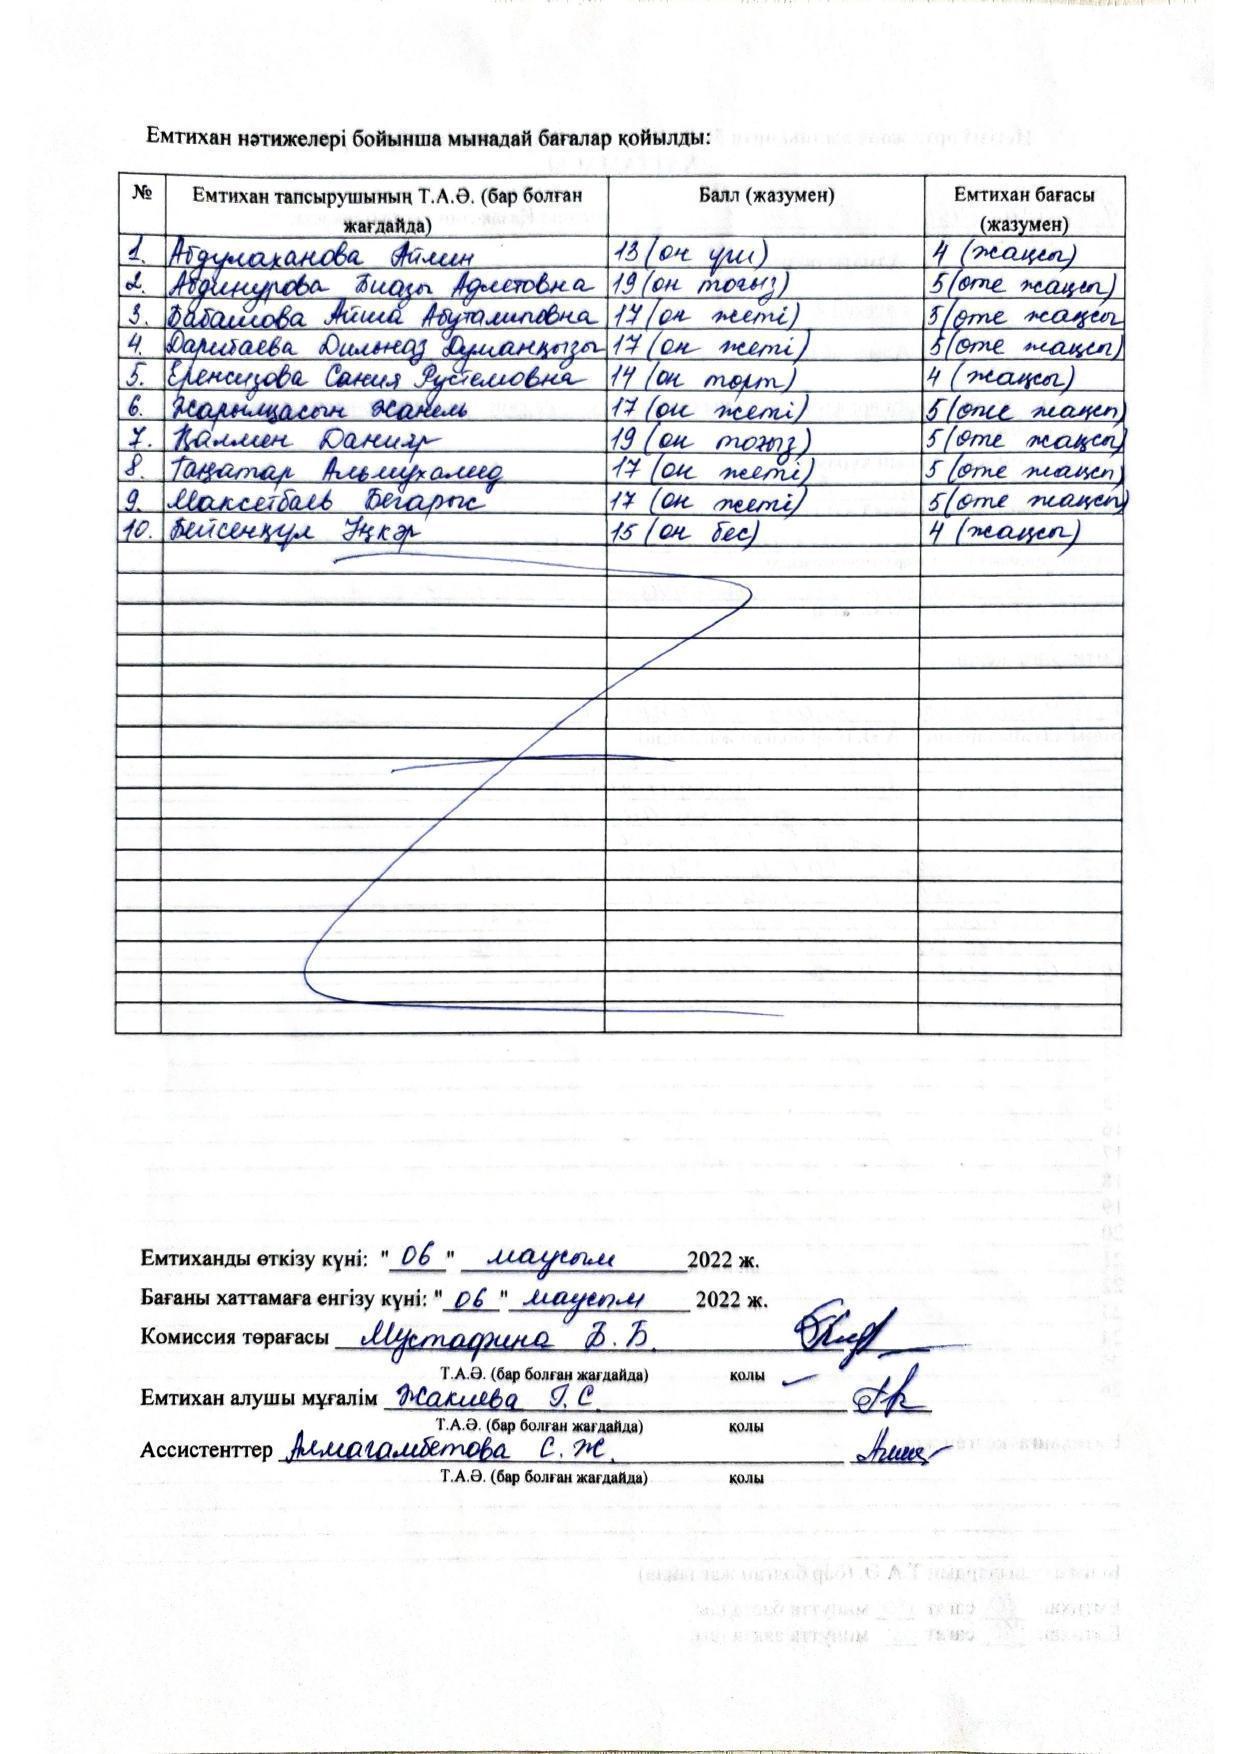 Емтихан нәтижелері бойынша мынадай бағалар қойылды:
№ Емтихан тапсырушының Т.А.Ә. (бар болған жағдайда) Балл (жазумен) Емтихан бағасы (жазумен)
1. Абдулаханова Айлин 13 (он үш) 4 (жақсы)
2. Абдинурова Биазы Адлетовна 19 (он тоғыз) 5 (өте жақсы)
3. Бабашова Айша Абуталиповна 17 (он жеті) 5 (өте жақсы
4. Дарибаева Дильназ Думанқызы 17 (он жеті) 5 (өте жақсы)
5. Еренсизова Сания Рустемовна 14 (он төрт) 4 (жақсы)
6. Жарылқасын Жанель 17 (он жеті) 5 (өте жақсы)
7. Қалмен Данияр 19 (он тоғыз) 5 (өте жақсы)
8. Таңатар Альмухамед 17 (он жеті) 5 (өте жақсы)
9. Максетбаев Бегарыс 17 (он жеті) 5 (өте жақсы)
10. Бейсенқұл Іңкәр 15 (он бес) 4 (жақсы)
Емтиханды өткізу күні: "06" маусым 2022 ж.
Бағаны хаттамаға енгізу күні: "06" маусым 2022 ж.
Комиссия төрағасы Мустафина Б.Б.
Т.А.Ә. (бар болған жағдайда) қолы
Емтихан алушы мұғалім Жакиева Г.С.
Т.А.Ә. (бар болған жағдайда) қолы
Ассистенттер Алмагамбетова С.Ж.
Т.А.Ә. (бар болған жағдайда) қолы